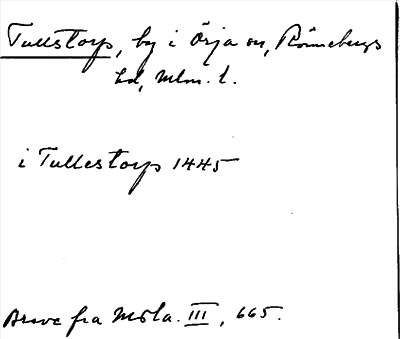 Tullstorp, by i Örja sn, Rönnebergs
hd, Mlm. l.
i Tullestorp 1445
Breve fra Msta. III, 665.